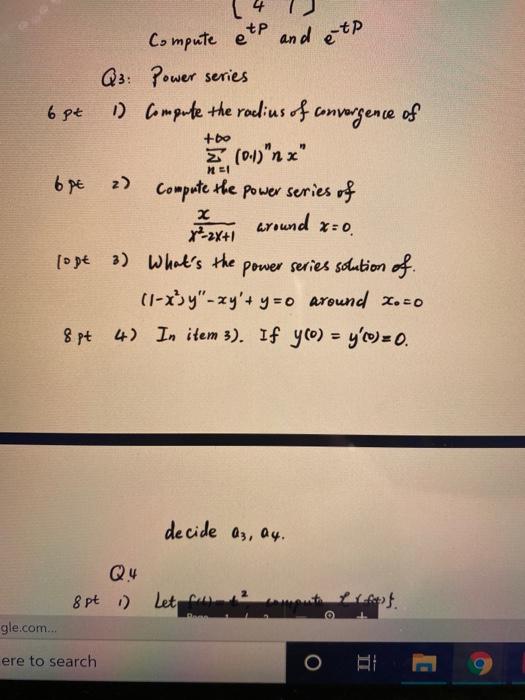 [ 4 1 ]
Compute e^tP and e^-tP
Q3: Power series
6 pt 1) Compute the radius of convergence of
+∞
Σ (0.1)^n n x^n
n=1
6 pt 2) Compute the power series of
x
x²-2x+1 around x=0.
10 pt 3) What's the power series solution of.
(1-x²)y''-xy'+y=0 around x₀=0
8 pt 4) In item 3). If y(0) = y'(0)=0.
decide a₃, a₄.
Q4
8 pt 1) Let f(t)=t², compute
gle.com...
ere to search